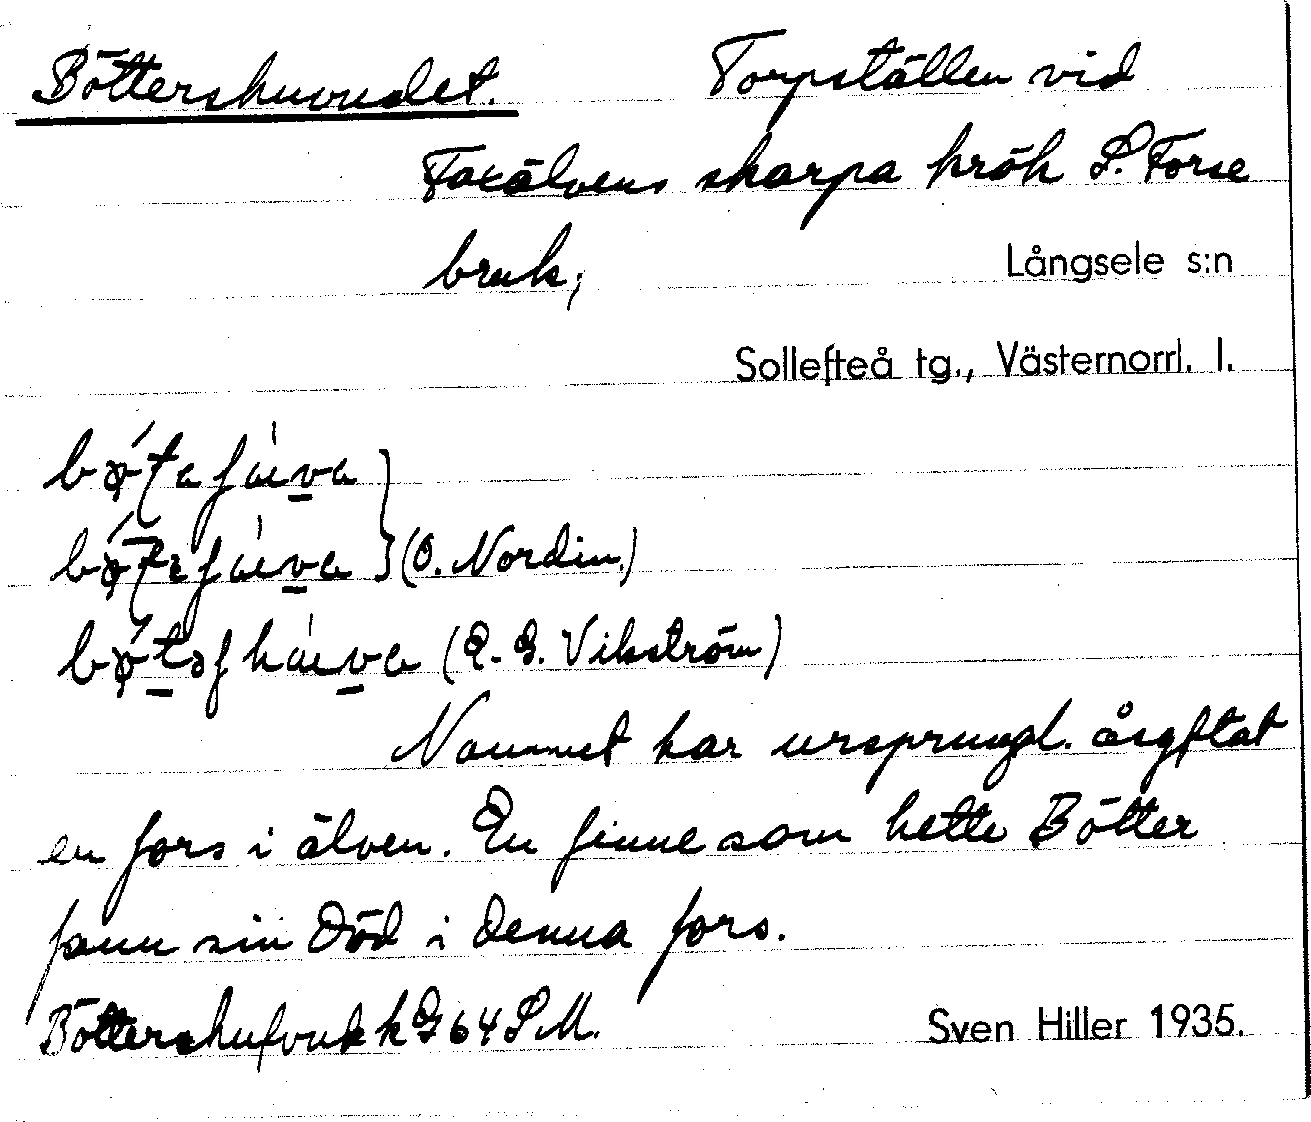 Böttershuvudet. Torpställen vid
Faxälvens skarpa krök S. Forse
bruk; Långsele s:n
Sollefteå tg., Västernorrl. l.
(O. Nordin.)
(E. G. Vikström)
Namnet har ursprungl. åsyftat
en fors i älven. En finne som hette Bötter
fann sin död i denna fors.
Böttershufvud k G 64 S.M. Sven Hiller 1935.